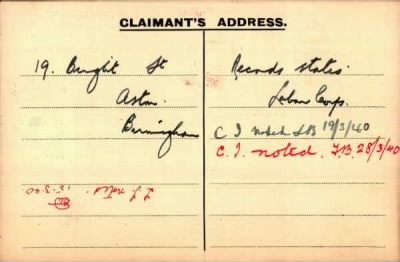 CLAIMANT'S ADDRESS.
19. Bright St
Aston
Birmingham
Records states
Labour Corps.
C I noted 19/3/40
C. I. noted. 28/3/40
noted. 15-3-40